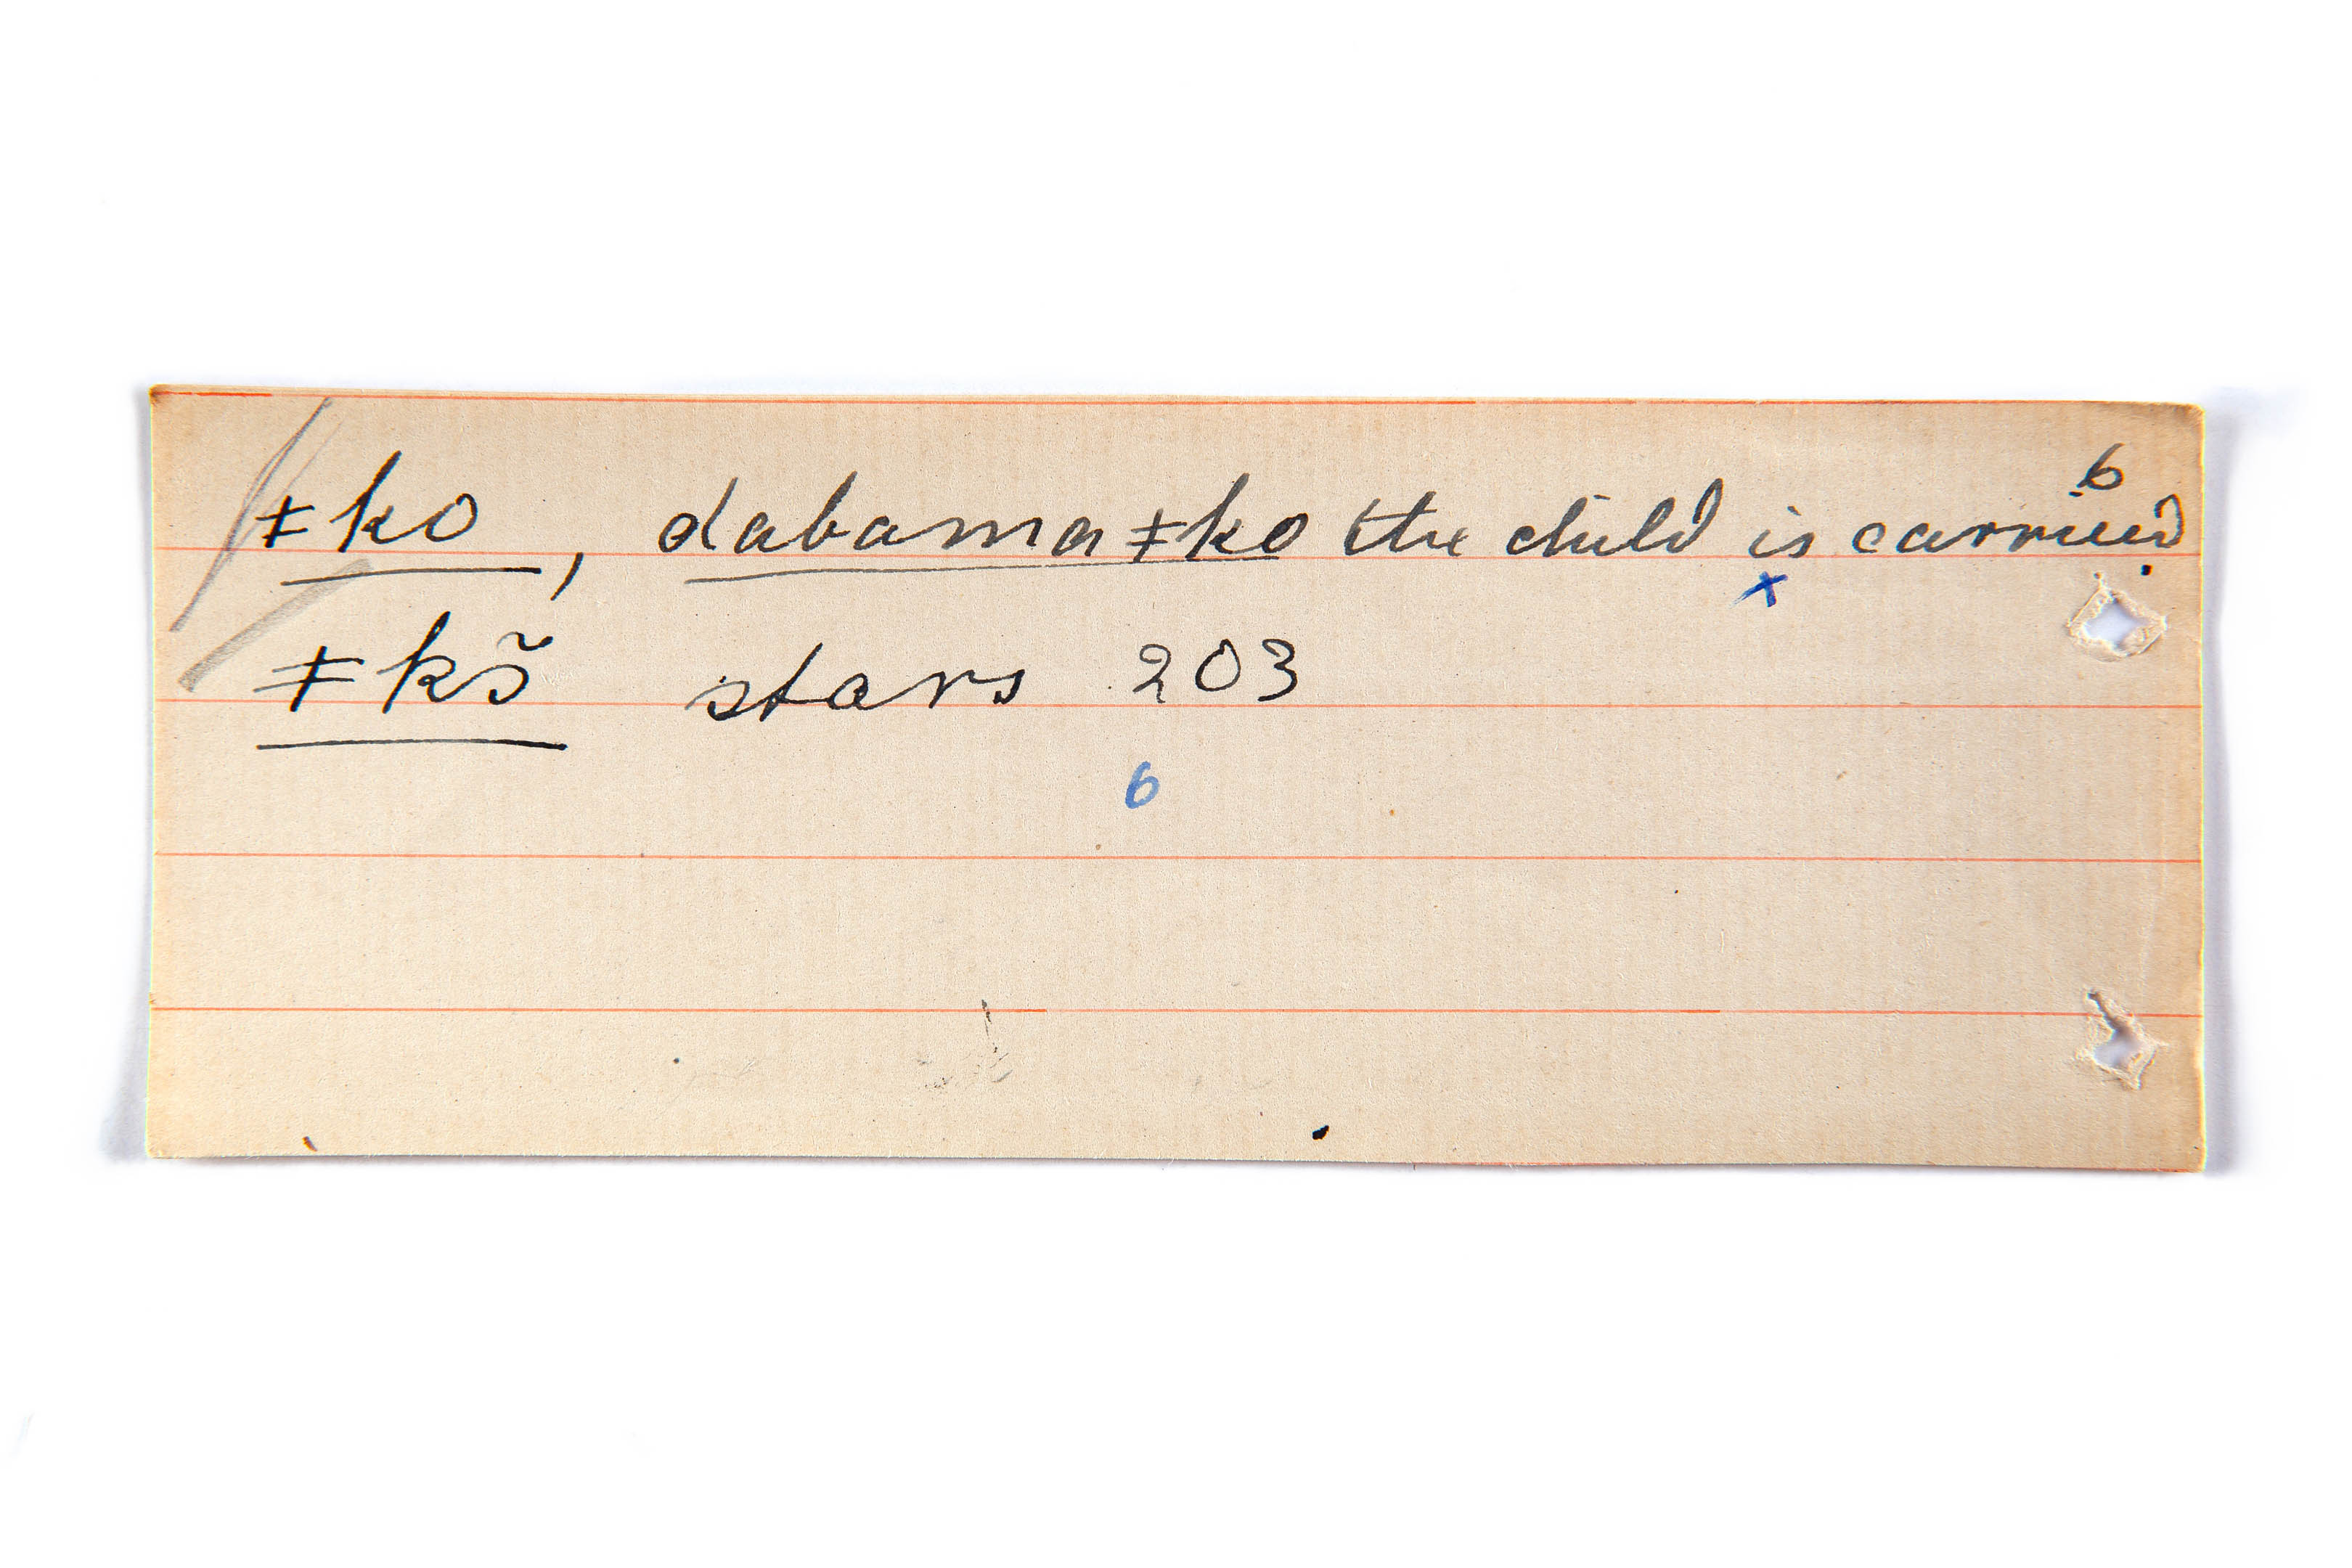 6
ǂko, dabama ǂko the child is carried.
x
ǂkš stars 203
6